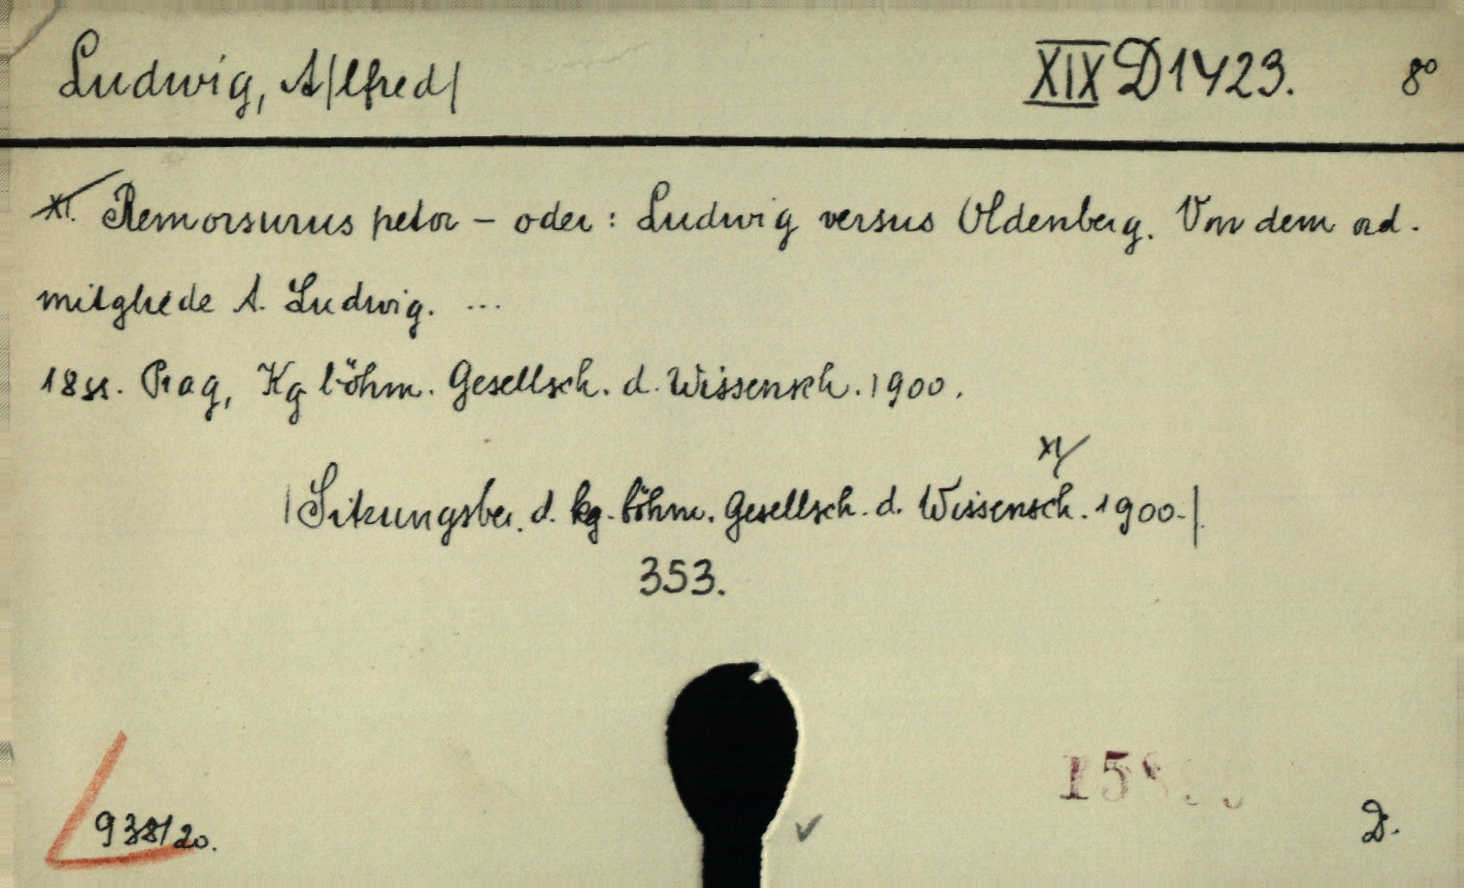 Ludwig, A/lfred/ XIX D 1423. 8°
XI. Remorsurus petor – oder: Ludwig versus Oldenberg. Von dem ord.
mitgliede A. Ludwig. ...
18 ss. Prag, Kg böhm. Gesellsch. d. Wissensch. 1900.
XI
/Sitzungsber. d. kg. böhm. Gesellsch. d. Wissensch. 1900./.
353.
938/20.
D.